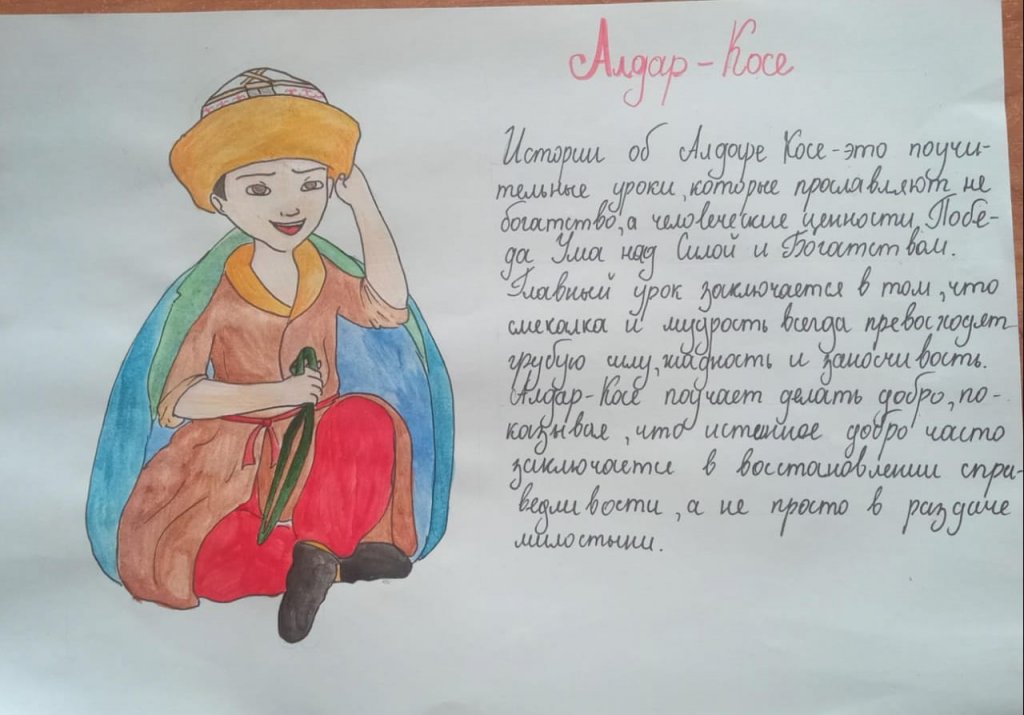 Алдар-Косе
Истории об Алдаре Косе-это поучи-
тельные уроки, которые прославляют не
богатство, а человеческие ценности. Побе-
да Ума над Силой и Богатством.
Главный урок заключается в том, что
смекалка и мудрость всегда превосходят
грубую силу, жадность и заносчивость.
Алдар-Косе поучает делать добро, по-
казывая, что истинное добро часто
заключается в восстановлении спра-
ведливости, а не просто в раздаче
милостыни.